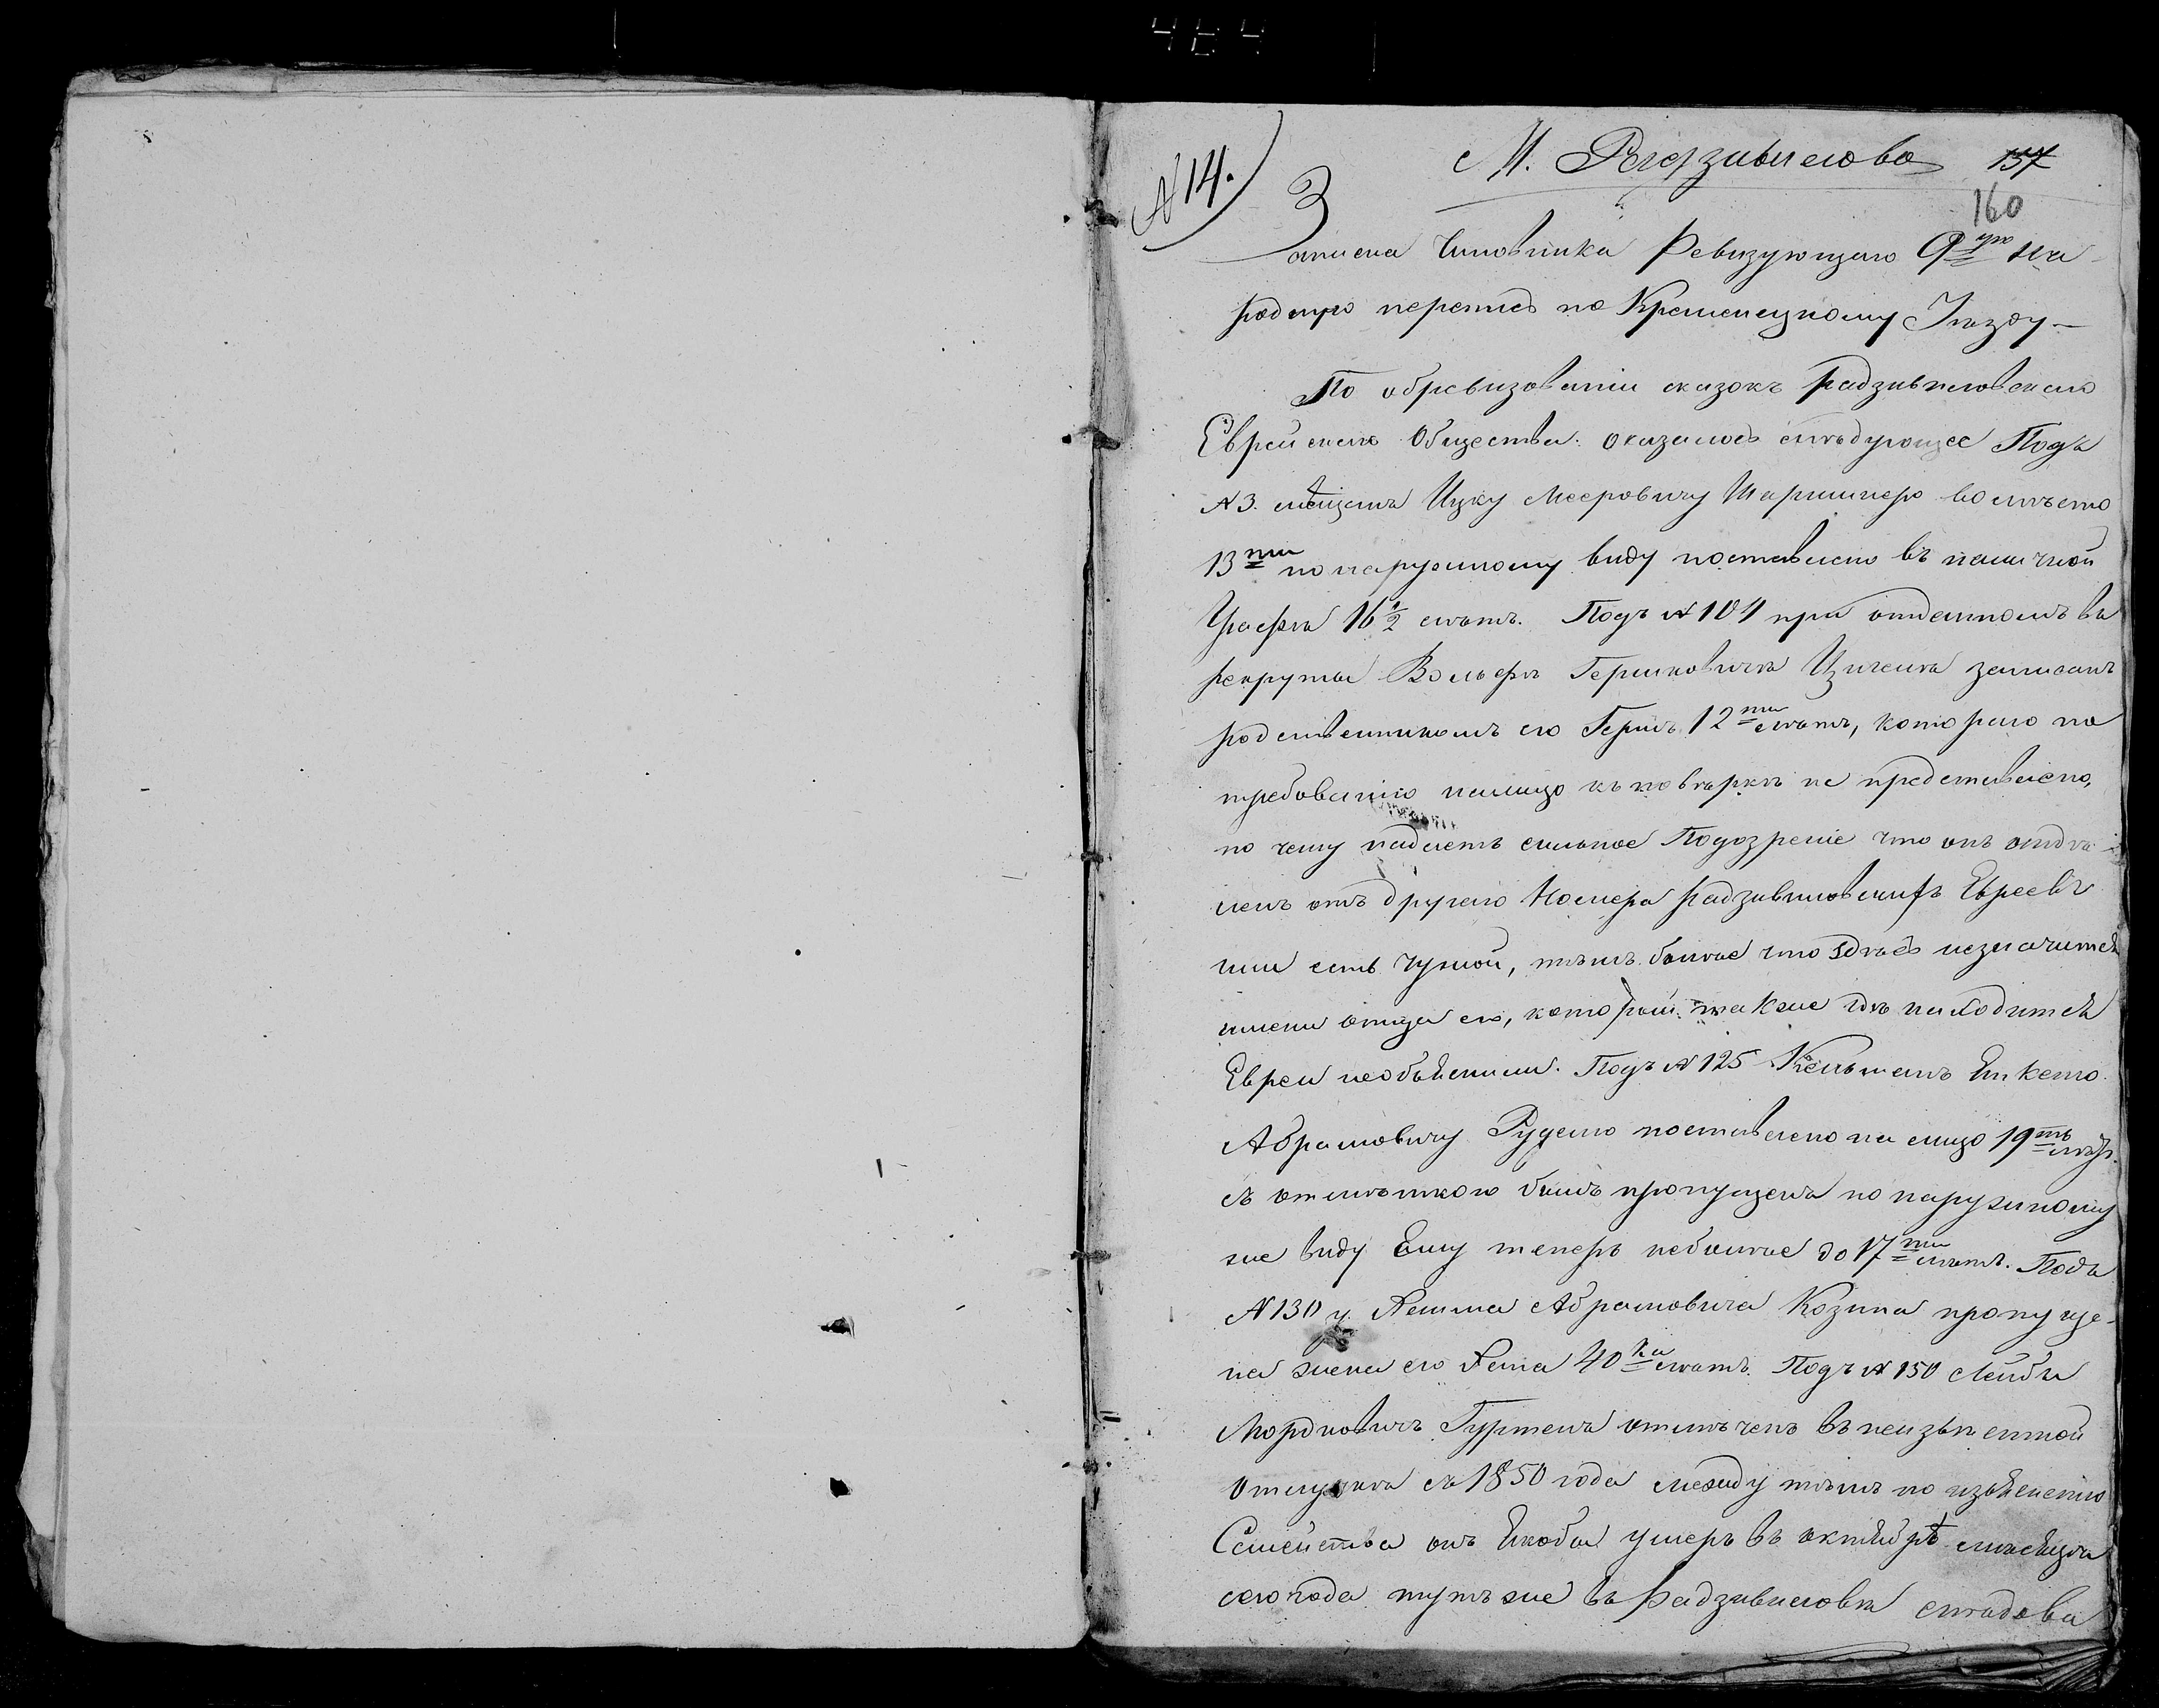 464
N 14.)
М. Радзивилово 157
160
Записка Чиновника Ревизующаго 9ую на-
родную перепись по Кременецкому Уѣзду —
По обревизованіи сказокъ Радзивиловскаго
Еврейскаго Общества оказалось слѣдующее Подъ
N 3. Ицку Мееровичу вмѣсто
13ти по наружному виду поставлено въ наличной
Графѣ 16½ лѣтъ. Подъ N 104 при отданномъ въ
рекруты Вольфѣ Гершковичѣ записанъ
родственникомъ его Гершъ 12ти лѣтъ, котораго по
требованію налицо къ повѣркѣ не представлено,
по чему падаетъ сильное Подозреніе что онъ отда-
ленъ отъ другаго Номера Радзивиловскихъ Евреевъ
или есть чужой, тѣмъ болѣе что здѣсь незначится
имени отца его, который также гдѣ находится
Евреи необъяснили. Подъ N 125
Абрамовичу поставлено на лицо 19ть лѣтъ
съ отмѣткою былъ пропущенъ по наружному
же виду Ему теперь неболѣе до 17ти лѣтъ. Подъ
N 130 у Абрамовича Козина пропуще-
на жена его 40ка лѣтъ. Подъ N 150 Лейба
Мордковичъ отмѣченъ въ неизвѣстной
Отлучкѣ съ 1850 года между тѣмъ по изъясненію
Семейства онъ якобы умеръ въ октябрѣ мѣсяцѣ
сего года тутъ же въ Радзивиловѣ слѣдова